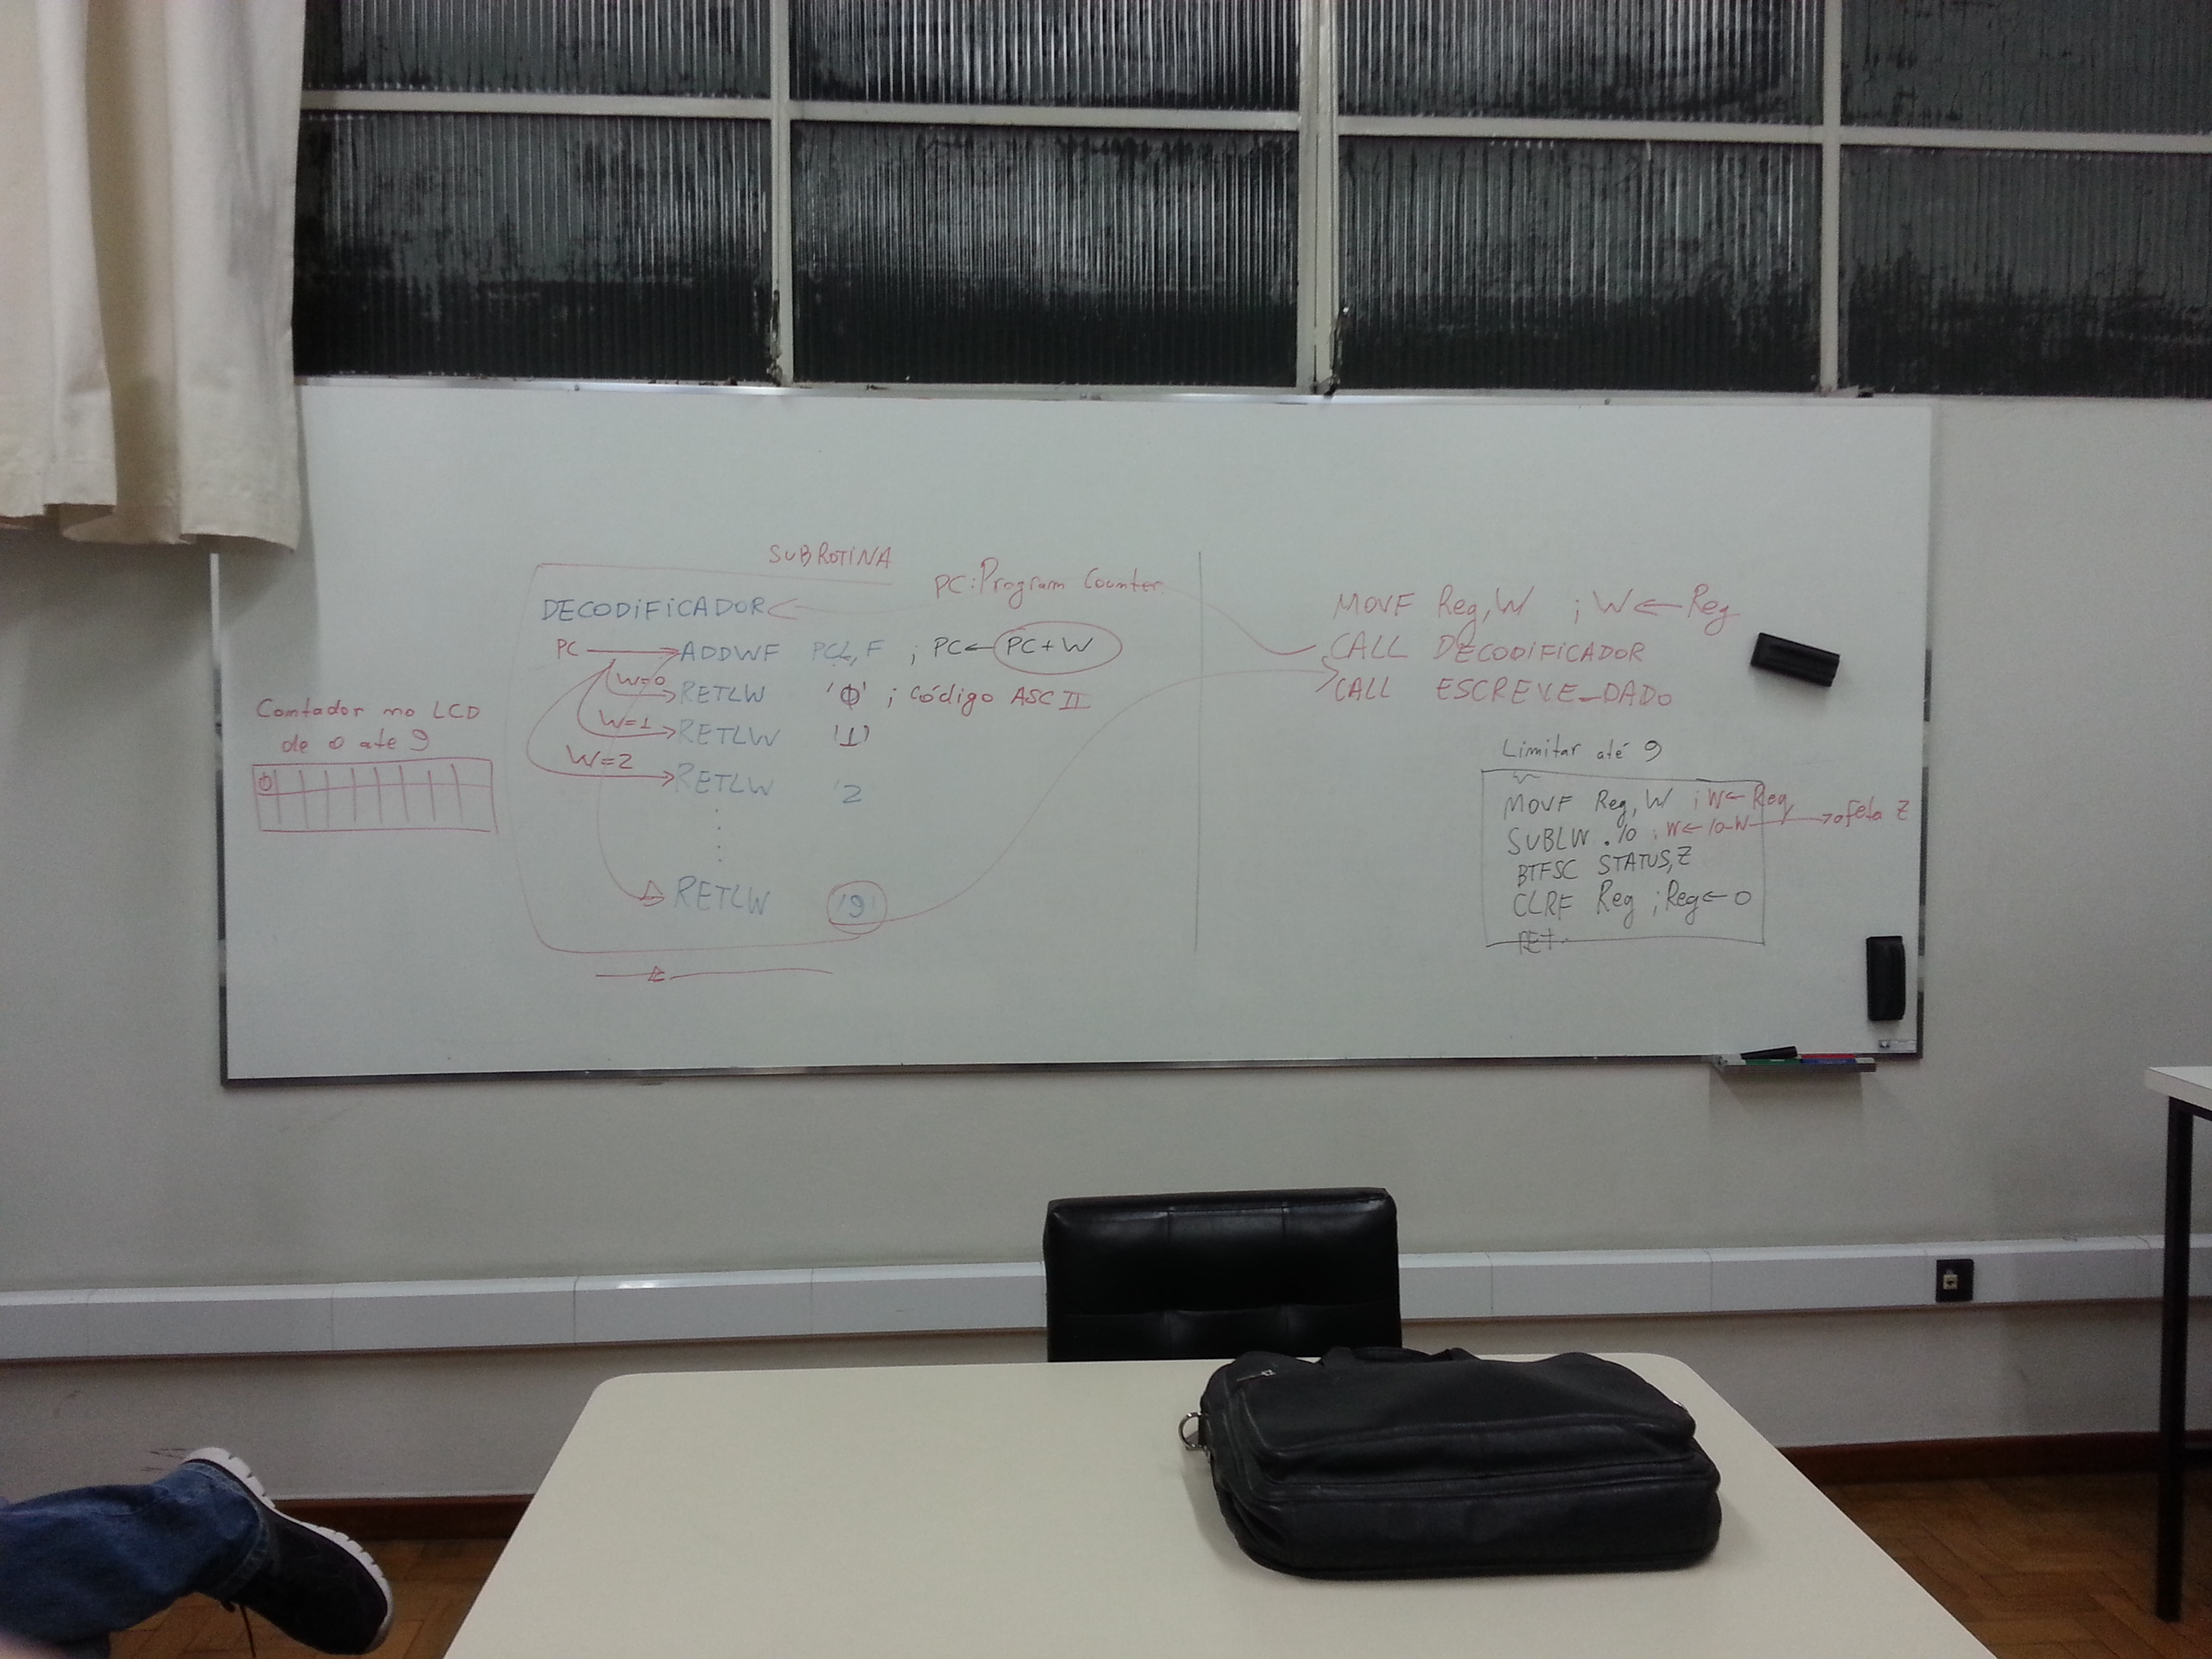 SUBROTINA
PC:Program Counter
DECODIFICADOR
PC ADDWF PCL,F ; PC← PC+W
W=0 RETLW 'Φ' ; Código ASCII
W=1 RETLW '1'
W=2 RETLW '2
RETLW '9'
Contador no LCD
de 0 até 9
0
MOVF Reg,W ; W←Reg
CALL DECODIFICADOR
CALL ESCREVE_DADO
Limitar até 9
MOVF Reg,W ; W←Reg
SUBLW .10 ; W←10-W →afeta Z
BTFSC STATUS,Z
CLRF Reg ; Reg←0
RET.